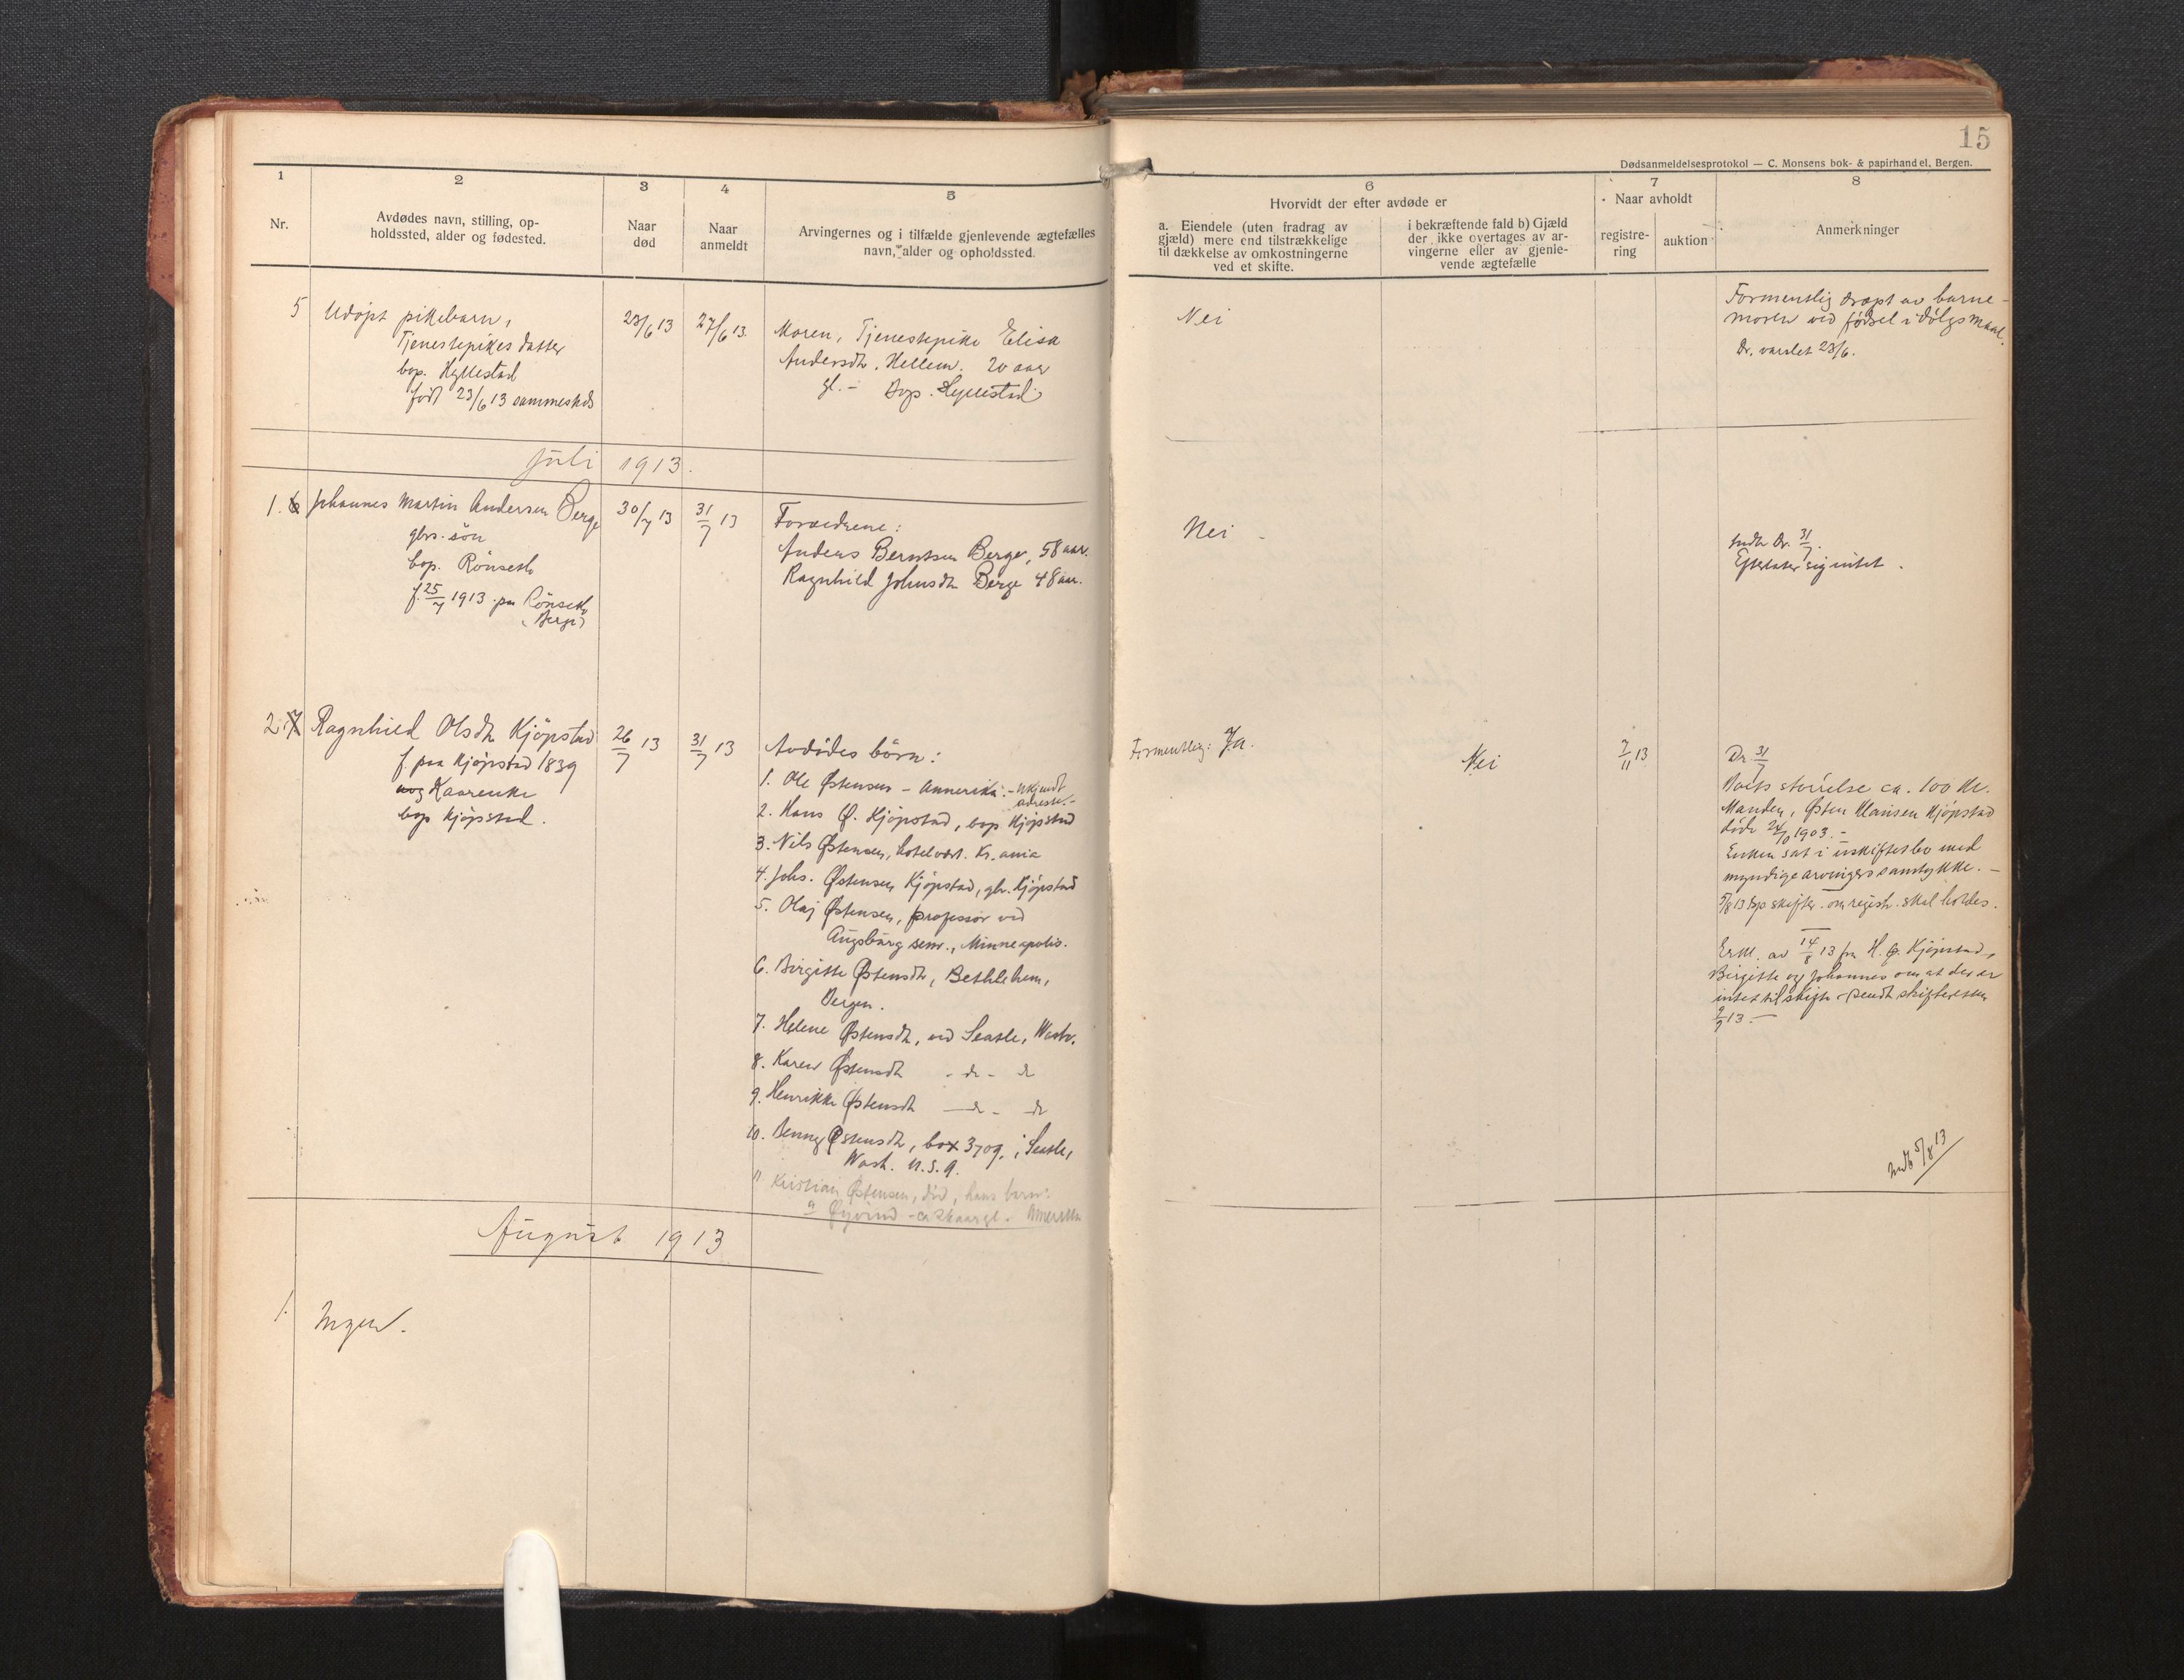 15
Dødsanmeldelsesprotokol — C. Monsens bok- & papirhandel, Bergen.
1
Nr.
2
Avdødes navn, stilling, op-
holdssted, alder og fødested.
3
Naar
død
4
Naar
anmeldt
5
Arvingernes og i tilfælde gjenlevende ægtefælles
navn, alder og opholdssted.
6
Hvorvidt der efter avdøde er
a. Eiendele (uten fradrag av
gjæld) mere end tilstrækkelige
til dækkelse av omkostningerne
ved et skifte.
i bekræftende fald b) Gjæld
der ikke overtages av ar-
vingerne eller av gjenle-
vende ægtefælle
7
Naar avholdt
registre-
ring
auktion
8
Anmerkninger
5
Udøpt pikebarn,
Tjenestepikes datter
bop. Hyllestad
født 23/6 13 sammesteds
23/6 13
27/6 13
Moren, Tjenestepike Elisa
Andersdtr. Hellem. 20 aar
gl. - Bop. Hyllestad
Nei
Formentlig dræpt av barne-
moren ved fødsel i dølgsmaal.
Dr. varslet 23/6.
Juli 1913.
1. 6
Johannes Martin Andersen Berge
gbr. søn
bop. Rönset
f. 25/7 1913 paa Rönset
(Berge)
30/7 13
31/7 13
Forældrene:
Anders Berntsen Berge, 58 aar.
Ragnhild Johnsdtr Berge 48 aar.
Nei -
Indb Dr. 31/7.
Efterlater sig intet.
2. 7
Ragnhild Olsdtr Kjöpstad
f. paa Kjöpstad 1839
Kaarenke
bop Kjöpstad.
26/7 13
31/7 13
Avdödes börn:
1. Ole Østensen - Amerika. - ukjendt
adresse. -
2. Hans Ø. Kjöpstad, bop Kjöpstad
3. Nils Østensen, hotelvært. Kr.ania
4. Johs. Østensen Kjöpstad, gbr. Kjöpstad
5. Olaj Østensen, professor ved
Augsburg sem., Minneapolis.
6. Birgitte Østensdtr, Bethlehem,
Bergen.
7. Helene Østensdtr, ved Seatle, Wash.
8. Karen Østensdtr - do - do
9. Henrikke Østensdtr - do - do
10. Benny Østensdtr, box 3709, i Seatle,
Wash. U.S.A.
11 Kristian Østensen, död, hans barn:
a Øyvind - ca aar gl. Amerika
Formentlig: Ja.
Nei
7/11 13
Dr. 31/7
Boets störrelse ca. 100 Kr.
Manden, Østen Hansen Kjöpstad
döde 24/10 1903. -
Enken sat i uskiftet bo med
myndige arvingers samtykke. -
5/8 13 skifter. om registr. skal holdes.
Erkl. av 14/8 13 fra H. Ø. Kjöpstad,
Birgitte og Johannes om at der er
intet til skifte - sendt skifteretten
9/9 13. -
Indb 5/8 13
August 1913
1.
Ingen.